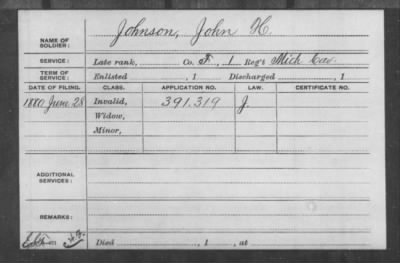 NAME OF SOLDIER: Johnson, John H.
SERVICE: Late rank, Co. F, 1 Reg't Mich Cav.
TERM OF SERVICE: Enlisted , 1 Discharged , 1
DATE OF FILING. CLASS. APPLICATION NO. LAW. CERTIFICATE NO.
1880 June 28 Invalid, 391.319 J.
Widow,
Minor,
ADDITIONAL SERVICES:
REMARKS:
Died , 1 , at